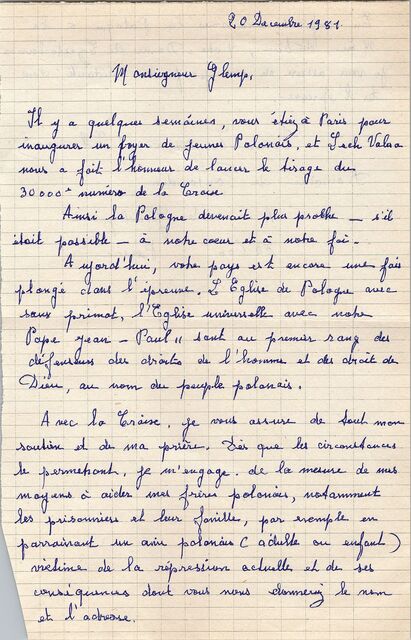 20 Decembre 1981
Monseigneur Glemp,
Il y a quelques semaines, vous étiez à Paris pour
inaugurer un foyer de jeunes Polonais, et Lech Valesa
nous a fait l'honneur de lancer le tirage du
30 000è numéro de la Croix.
Ainsi la Pologne devenait plus proche — s'il
était possible — à notre coeur et à notre foi.
Aujord'hui, votre pays est encore une fois
plongé dans l'épreuve. L'Eglise de Pologne avec
son primat, l'Eglise universelle avec notre
Pape Jean-Paul II sont au premier rang des
défenseurs des droits de l'homme et des droit de
Dieu, au nom du peuple polonais.
Avec la Croix, je vous assure de tout mon
soutien et de ma prière. Dès que les circonstances
le permettront, je m'engage de la mesure de mes
moyens à aider mes frères polonais, notamment
les prisonniers et leur famille, par exemple en
parrainant un ami polonais (adulte ou enfant)
victime de la répression actuelle et de ses
conséquences dont vous nous donnerez le nom
et l'adresse.